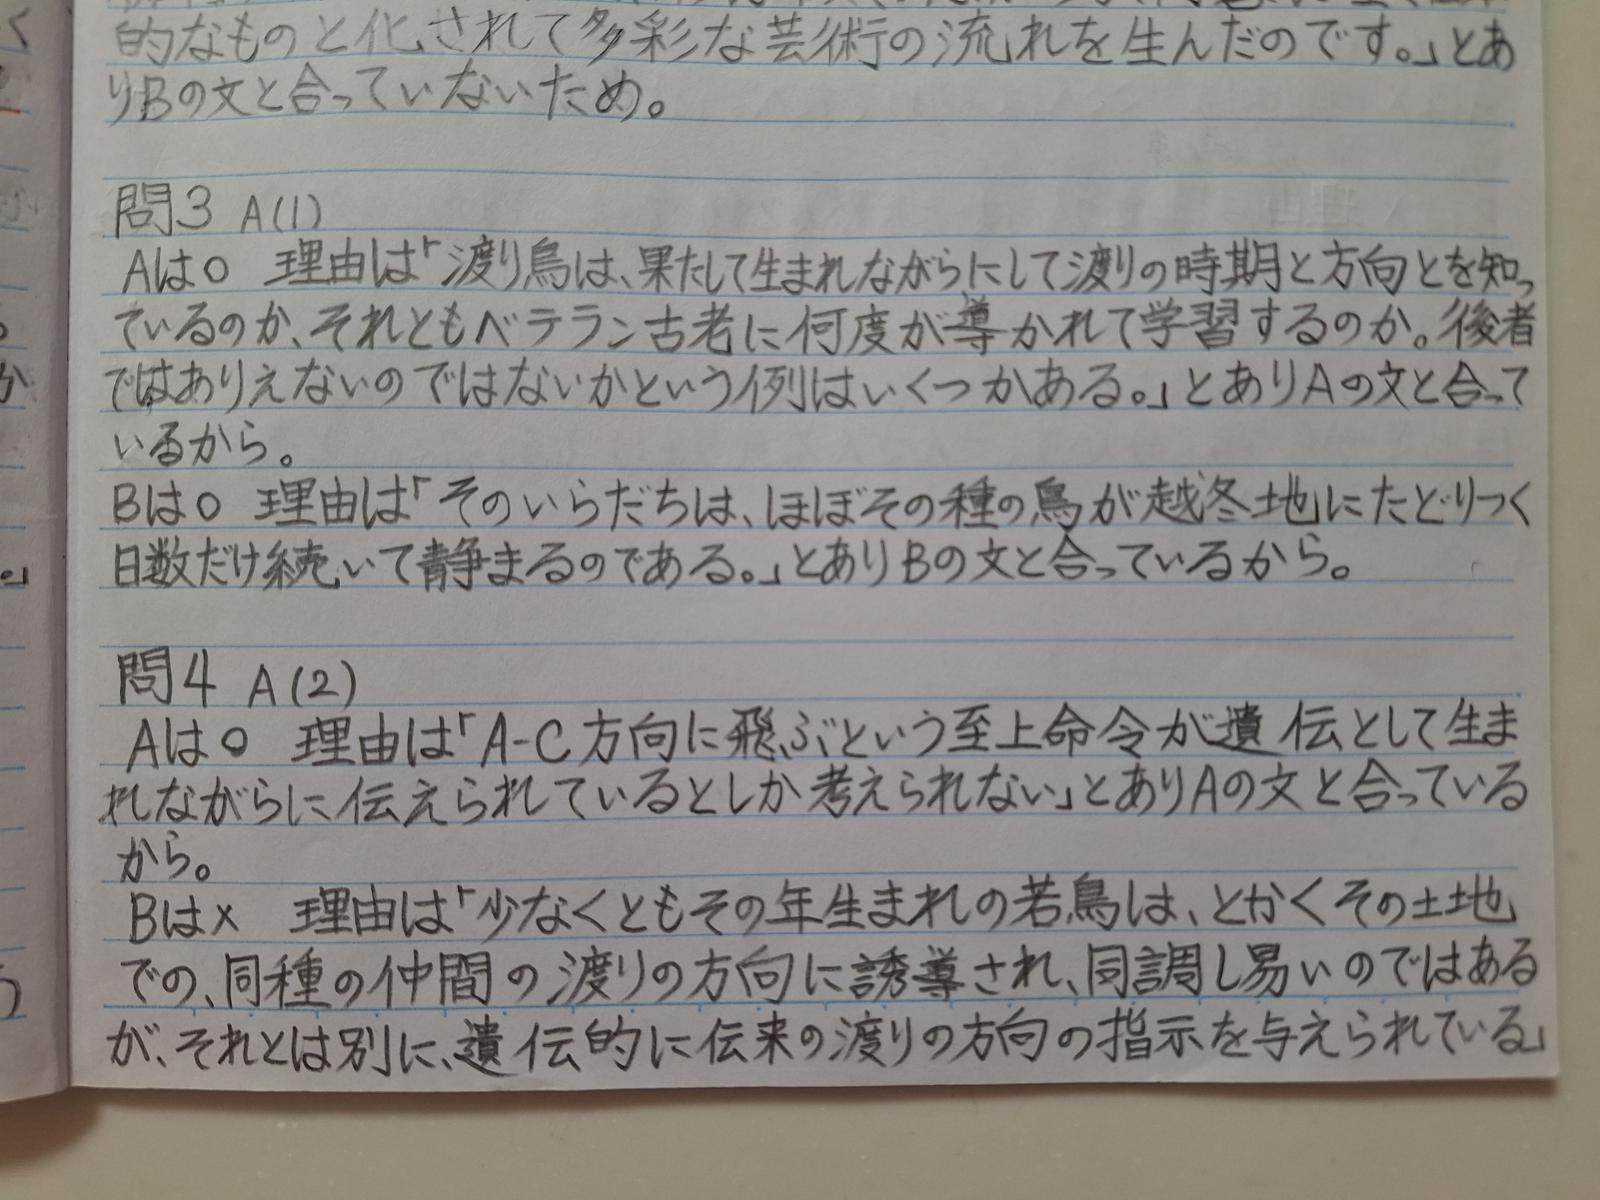 的なものと化されて多彩な芸術の流れを生んだのです。」とあ
りBの文と合っていないため。
問3 A(1)
Aは○ 理由は「渡り鳥は、果たして生まれながらにして渡りの時期と方向とを知っ
ているのか、それともベテラン古老に何度が導かれて学習するのか。後者
ではありえないのではないかという例はいくつかある。」とありAの文と合って
いるから。
Bは○ 理由は「そのいらだちは、ほぼその種の鳥が越冬地にたどりつく
日数だけ続いて静まるのである。」とありBの文と合っているから。
問4 A(2)
Aは○ 理由は「A-C方向に飛ぶという至上命令が遺伝として生ま
れながらに伝えられているとしか考えられない」とありAの文と合っている
から。
Bは× 理由は「少なくともその年生まれの若鳥は、とかくその土地
での、同種の仲間の渡りの方向に誘導され、同調し易いのではある
が、それとは別に、遺伝的に伝来の渡りの方向の指示を与えられている」